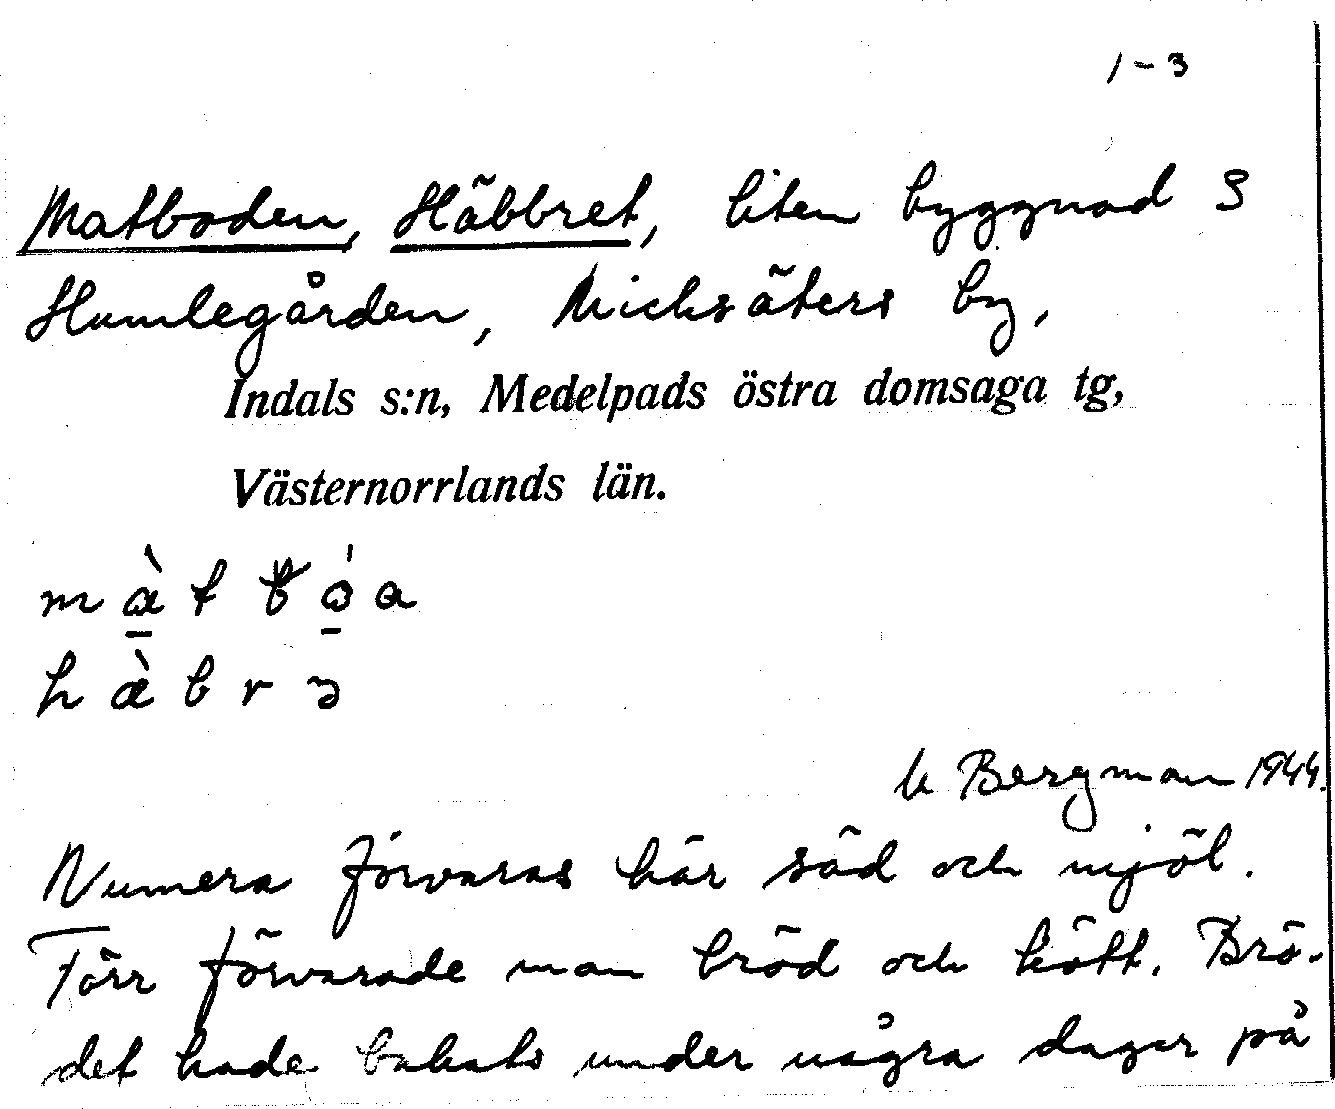 1-3
Matboden, Häbbret, liten byggnad S
Humlegården, Nicksäters by,
Indals s:n, Medelpads östra domsaga tg,
Västernorrlands län.
m à t b ó a
h à b r ə
Bergman 1944.
Numera förvaras här säd och mjöl.
Förr förvarade man bröd och kött. Brö-
det hade bakats under några dagar på